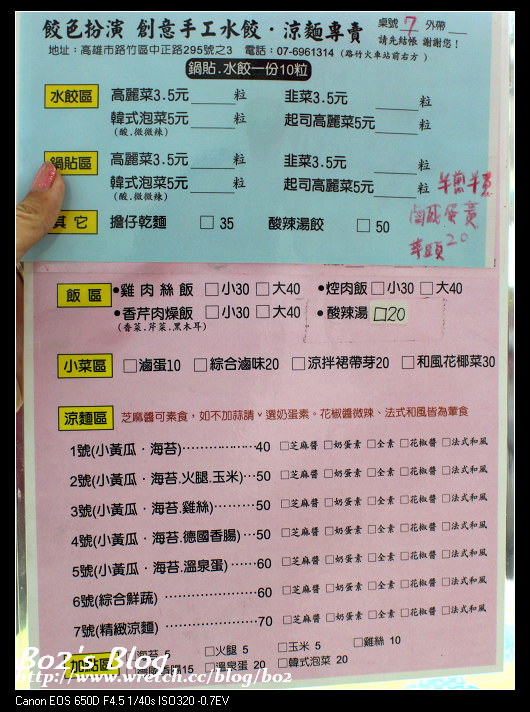 餃色扮演 創意手工水餃·涼麵專賣
桌號 7 外帶
請先結帳 謝謝您！
地址：高雄市路竹區中正路295號之3 電話：07-6961314（路竹火車站前右方）
鍋貼.水餃一份10粒
水餃區 高麗菜3.5元____粒 韭菜3.5元____粒
韓式泡菜5元____粒 起司高麗菜5元____粒
(酸.微微辣)
鍋貼區 高麗菜3.5元____粒 韭菜3.5元____粒
韓式泡菜5元____粒 起司高麗菜5元____粒
(酸.微微辣)
其它 擔仔乾麵 □ 35 酸辣湯餃 □ 50
20
飯區 •雞肉絲飯 □小30 □大40 •焢肉飯 □小30 □大40
•香芹肉燥飯 □小30 □大40 •酸辣湯 □20
(香菜.芹菜.黑木耳)
小菜區 □滷蛋10 □綜合滷味20 □涼拌裙帶芽20 □和風花椰菜30
涼麵區 芝麻醬可素食，如不加蒜請ˇ選奶蛋素。花椒醬微辣、法式和風皆為葷食
1號(小黃瓜·海苔)………………40 □芝麻醬 □奶蛋素 □全素 □花椒醬 □法式和風
2號(小黃瓜·海苔.火腿.玉米)…50 □芝麻醬 □奶蛋素 □全素 □花椒醬 □法式和風
3號(小黃瓜·海苔.雞絲)………50 □芝麻醬 □奶蛋素 □全素 □花椒醬 □法式和風
4號(小黃瓜·海苔.德國香腸)…50 □芝麻醬 □奶蛋素 □全素 □花椒醬 □法式和風
5號(小黃瓜·海苔.溫泉蛋)……60 □芝麻醬 □奶蛋素 □全素 □花椒醬 □法式和風
6號(綜合鮮蔬)…………………60 □芝麻醬 □奶蛋素 □全素 □花椒醬 □法式和風
7號(精緻涼麵)…………………70 □芝麻醬 □奶蛋素 □全素 □花椒醬 □法式和風
加點區 海苔 5 □火腿 5 □玉米 5 □雞絲 10
15 □溫泉蛋 20 □韓式泡菜 20
Bo2's Blog
http://www.wretch.cc/blog/bo2
Canon EOS 650D F4.5 1/40s ISO320 -0.7EV